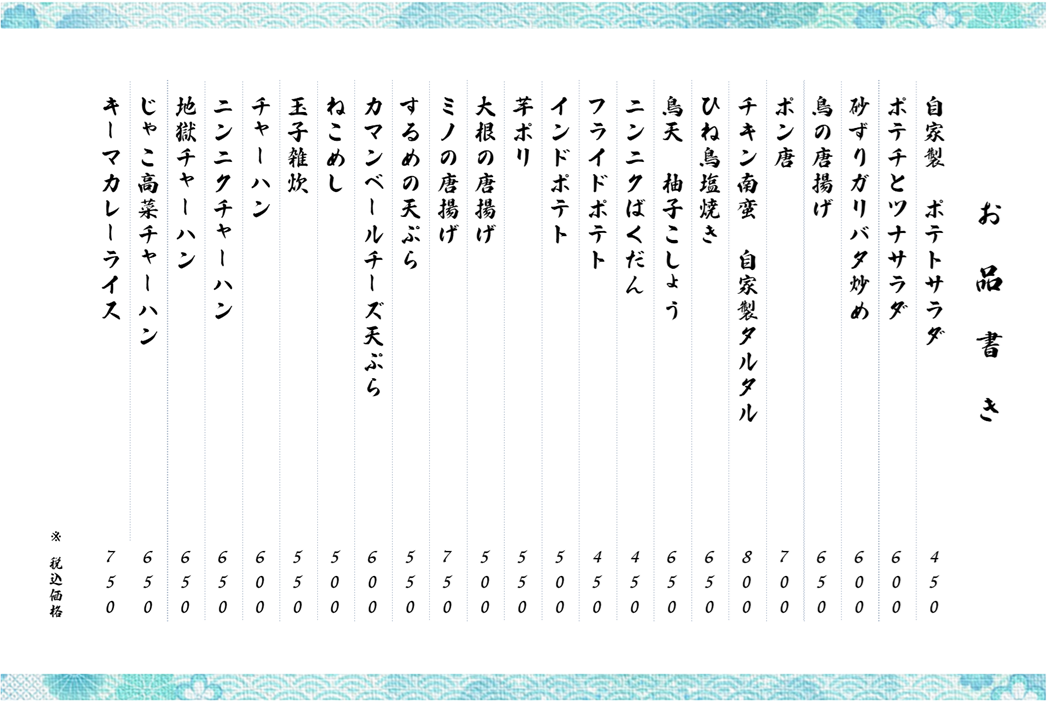 お品書き
自家製 ポテトサラダ 450
ポテチとツナサラダ 600
砂ずりガリバタ炒め 600
鳥の唐揚げ 650
ポン唐 700
チキン南蛮 自家製タルタル 800
ひね鳥塩焼き 650
鳥天 柚子こしょう 650
ニンニクばくだん 450
フライドポテト 450
インドポテト 500
芋ポリ 550
大根の唐揚げ 500
ミノの唐揚げ 750
するめの天ぷら 550
カマンベールチーズ天ぷら 600
ねこめし 500
玉子雑炊 550
チャーハン 600
ニンニクチャーハン 650
地獄チャーハン 650
じゃこ高菜チャーハン 650
キーマカレーライス 750
※ 税込価格